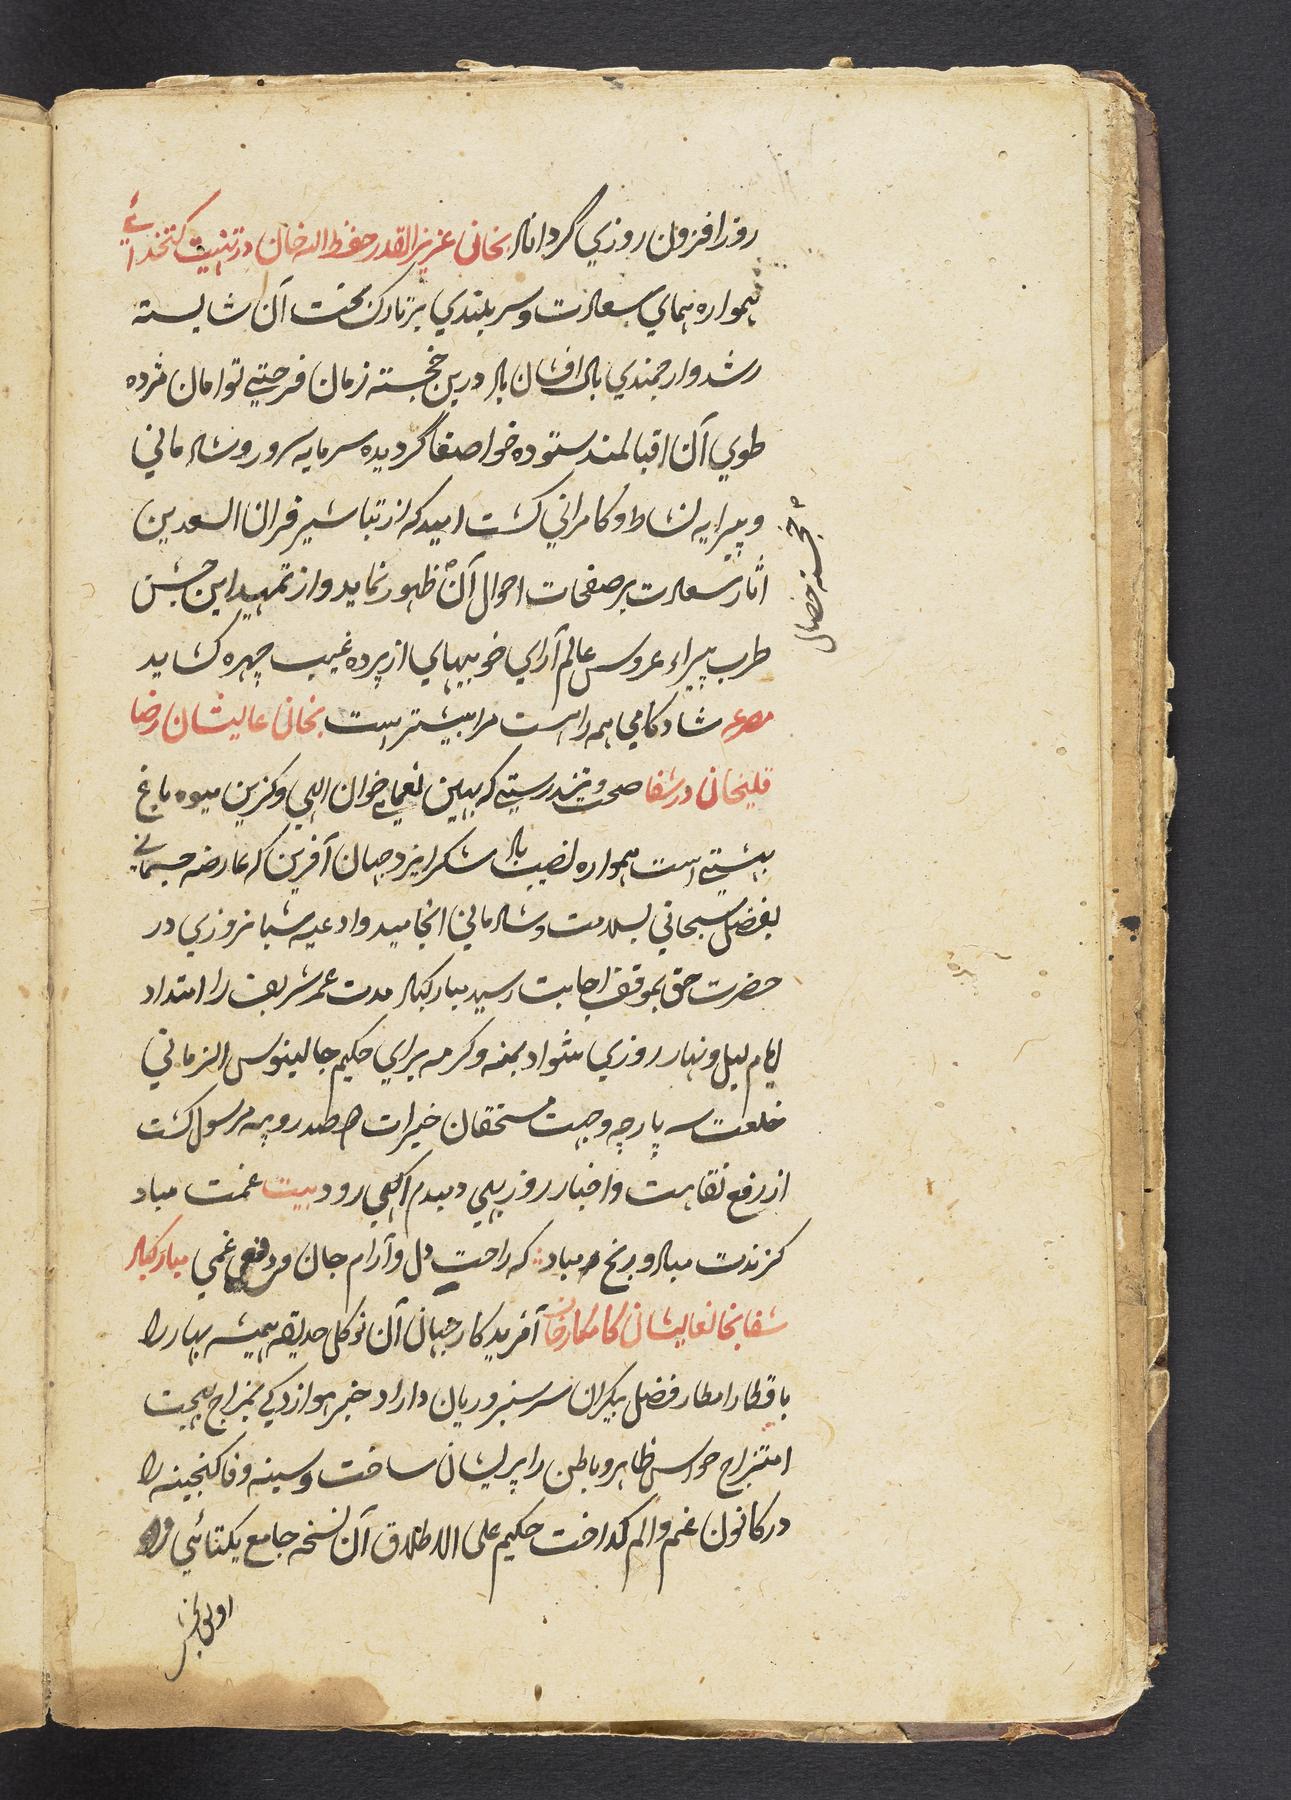 روز افزون روزي گرداناد بخانی عزیز القدر حفظ اله خان در تهنیت کتخدائے
همواره همای سعادت و سربلندي بر تارک بخت آن شایسته
رشد و ارجمندي بال افشان باد درین خجسته زمان فرحتے توامان مژده
طوي آن اقبالمند ستوده خواصفا گردیده سرمایه سرور و شادمانی
و پیرایه نشاط و کامرانی گشت امید که از تباشیر قران السعدین
اثار سعادت بر صفحات احوال آن ظهور نماید و از تمهید این جشن
خجسته خصال
طرب پیراء عروس عالم آرای خوبیهای از پرده غیب چهره کشاید
مصرعه شاد کامی همه راهست مرا بیشتر است بخانی عالیشان رضا
قلیخان در شفا صحت و تندرستے که بهین نعمایے خوان الهي و گزین میوه باغ
بهشتے است همواره نصیب باد شکر ایزد جهان آفرین که عارضه جسمانے
بفضل سبحانی بسلامت و شادمانی انجامید و ادعیه شبانروزي در
حضرت حق بموقف اجابت رسید مبارکباد مدت عمر شریف را امتداد
ایام لیل و نهار روزي شواد بمنه و کرمه برای حکیم جالینوس الزمانی
خلعت سه پارچه و جهت مستحقان خیرات صدروپیه مرسول گشت
از رفع نقاهت و اخبار روز بهی دمبدم اگهي رود بیت غمت مباد
گزندت مباد و رنج مباد که راحت دل و آرام جان و دفع غمی مبارکباد
شفا بخانعالیشان کامگار خان آفریدگار جهان آن نوگل حدیقه همیشه بهار را
باقطار امطار فضل بیکران سرسبز و ریان داراد خبر هوازدگے بمزاج بهجت
امتزاج حواس ظاهر و باطن را پریشان ساخت و سینه وفا گنجینه را
در کانون غم و الم گداخت حکیم علی الاطلاق آن نسخه جامع یکتائي را